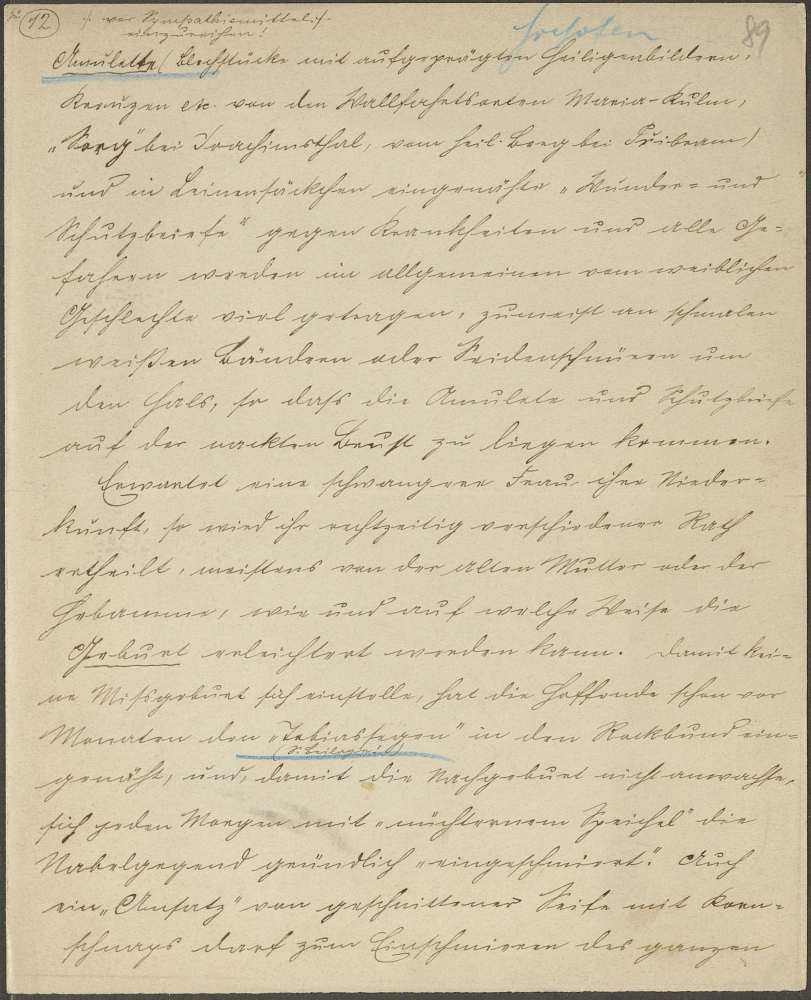 12
/: vor Sympathiemittel :/
einzureihen!
89
Amulette (Blechstücke mit aufgeprägten Heiligenbildern,
Kreuzen etc. von den Wallfahrtsorten Maria-Kulm,
„Sorg" bei Joachimsthal, vom heil. Berg bei Přibram)
und in Leinensäckchen eingenähte „Wunder= und
Schutzbriefe" gegen Krankheiten und alle Ge=
fahren werden im allgemeinen vom weiblichen
Geschlechte viel getragen, zumeist an schmalen
weißen Bändern oder Seidenschnüren um
den Hals, so dass die Amulete und Schutzbriefe
auf der nackten Brust zu liegen kommen.
Erwartet eine schwangere Frau ihre Nieder=
kunft, so wird ihr rechtzeitig verschiedener Rath
ertheilt, meistens von der alten Mutter oder der
Hebamme, wie und auf welche Weise die
Geburt erleichtert werden kann. Damit kei=
ne Missgeburt sich einstelle, hat die Hoffende schon vor
Monaten den „Tobiassegen" in den Rockbund ein=
genäht, und, damit die Nachgeburt nicht anwachse,
sich jeden Morgen mit „nüchternem Speichel" die
Nabelgegend gründlich „eingeschmiert". Auch
ein „Ansatz" von geschnittener Seife mit Korn=
schnaps darf zum Einschmieren des ganzen